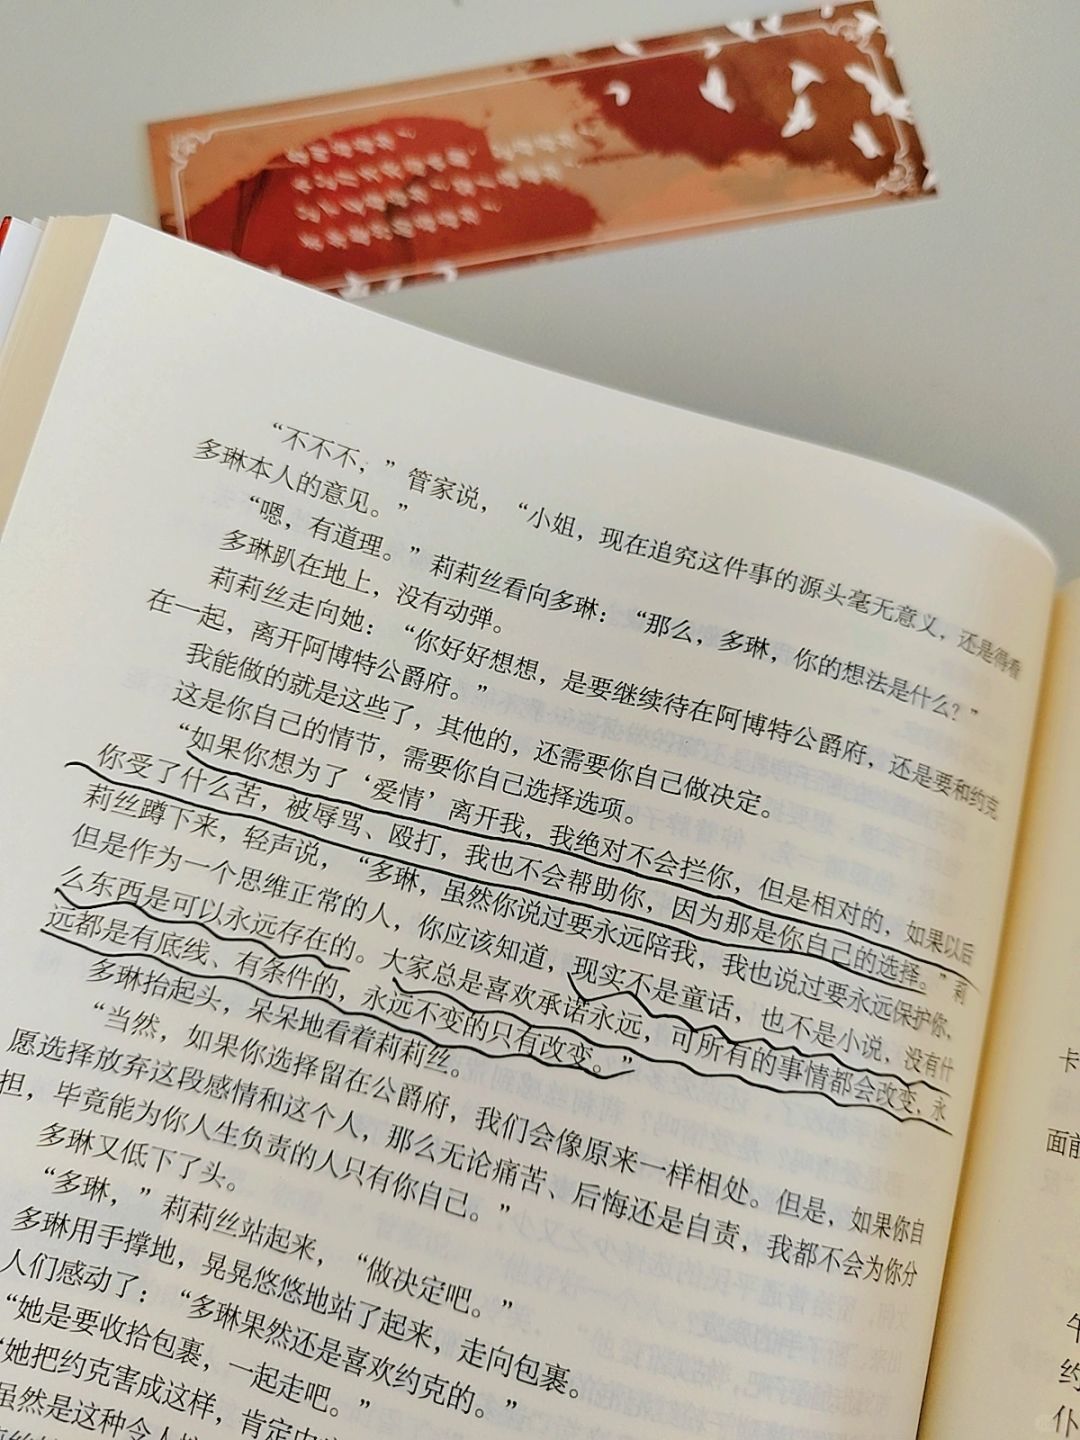 “不不不，”管家说，“小姐，现在追究这件事的源头毫无意义，还是得看
多琳本人的意见。”
“嗯，有道理。”莉莉丝看向多琳：“那么，多琳，你的想法是什么？”
多琳趴在地上，没有动弹。
莉莉丝走向她：“你好好想想，是要继续待在阿博特公爵府，还是要和约克
在一起，离开阿博特公爵府。”
我能做的就是这些了，其他的，还需要你自己做决定。
这是你自己的情节，需要你自己选择选项。
“如果你想为了‘爱情’离开我，我绝对不会拦你，但是相对的，如果以后
你受了什么苦，被辱骂、殴打，我也不会帮助你，因为那是你自己的选择。”莉
莉丝蹲下来，轻声说，“多琳，虽然你说过要永远陪我，我也说过要永远保护你，
但是作为一个思维正常的人，你应该知道，现实不是童话，也不是小说，没有什
么东西是可以永远存在的。大家总是喜欢承诺永远，可所有的事情都会改变，永
远都是有底线、有条件的，永远不变的只有改变。”
多琳抬起头，呆呆地看着莉莉丝。
“当然，如果你选择留在公爵府，我们会像原来一样相处。但是，如果你自
愿选择放弃这段感情和这个人，那么无论痛苦、后悔还是自责，我都不会为你分
担，毕竟能为你人生负责的人只有你自己。”
多琳又低下了头。
“多琳，”莉莉丝站起来，“做决定吧。”
多琳用手撑地，晃晃悠悠地站了起来，走向包裹。
人们感动了：“多琳果然还是喜欢约克的。”
“她是要收拾包裹，一起走吧。”
“她把约克害成这样，肯定
虽然是这种令人
卡
面前
约
仆